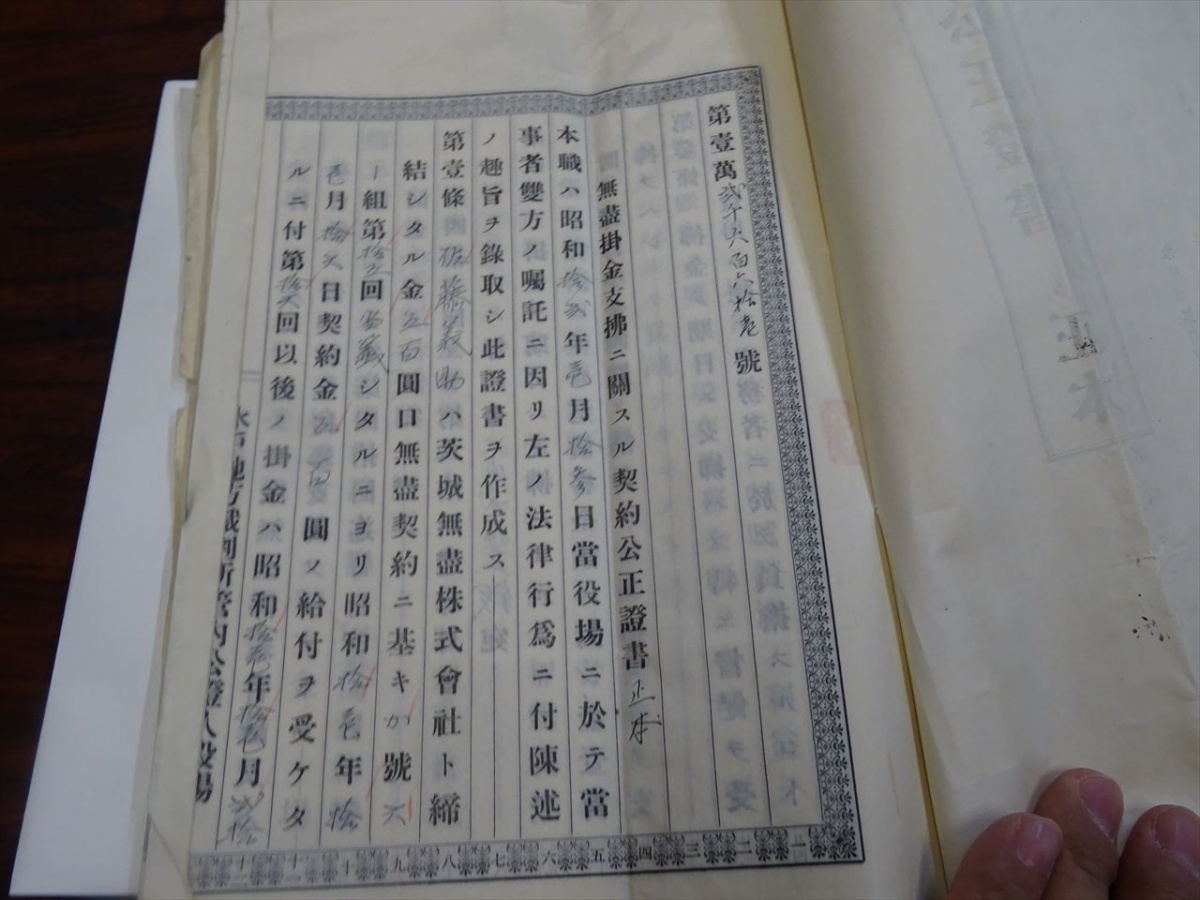 第壹萬弐千六百六拾壱號
無盡掛金支拂ニ關スル契約公正證書正本
本職ハ昭和拾弐年壱月拾參日當役場ニ於テ當
事者雙方ノ囑託ニ因リ左ノ法律行爲ニ付陳述
ノ趣旨ヲ錄取シ此證書ヲ作成ス
第壹條 佐藤 助ハ茨城無盡株式會社ト締
結シタル金五百圓口無盡契約ニ基キか號六
ノ組第拾五回當籤シタルニヨリ昭和拾壱年拾
壱月拾弐日契約金五百圓ノ給付ヲ受ケタ
ルニ付第拾六回以後ノ掛金ハ昭和拾壱年拾壱月弐拾
水戸地方裁判所管内公證人役場
一 二 三 四 五 六 七 八 九 十 十一 十二